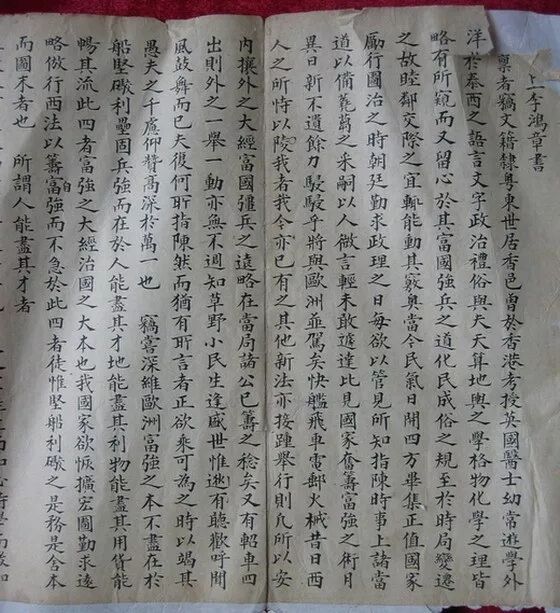 李鴻章書
稟者竊文籍隸粵東世居香邑曾於香港考授英國醫士幼嘗遊學外
洋於泰西之語言文字政治禮俗與夫天算地輿之學格物化學之理皆
略有所窺而又留心於其富國強兵之道化民成俗之規至於時局變遷
之故睦鄰交際之宜輒能動其竅奧當今民氣日開四方畢集正值國家
勵行圖治之時朝廷勤求政理之日每欲以管見所知指陳時事上諸當
道以備蕘蒭之采嗣以人微言輕未敢遽達比見國家奮籌富強之術月
異日新不遺餘力駸駸乎將與歐洲並駕矣快艦飛車電郵火械昔日西
人之所恃以陵我者我今亦已有之其他新法亦接踵舉行則凡所以安
內攘外之大經富國彊兵之遠略在當局諸公已籌之稔矣又有軺車四
出則外之一舉一動亦無不週知草野小民生逢盛世惟逖有聽歡呼聞
風鼓舞而已夫復何所指陳然而猶有所言者正欲乘可為之時以竭其
愚夫之千慮仰贊高深於萬一也 竊嘗深維歐洲富強之本不盡在於
船堅礮利壘固兵強而在於人能盡其才地能盡其利物能盡其用貨能
暢其流此四者富強之大經治國之大本也我國家欲恢擴宏圖勤求遠
略倣行西法以籌自富強而不急於此四者徒惟堅船利礮之是務是舍本
而圖末者也 所謂人能盡其才者